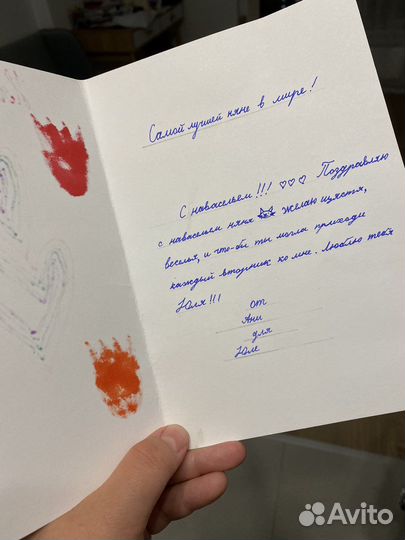 Самой лучшей няне в мире!
С наваселем!!! ♡♡♡ Поздравляю
с наваселым няня желаю щястя,
веселья, и что-бы ты могла приходи
каждый вторник ко мне. Люблю тебя
Юля!!!
от
Ани
для
Юле
Avito